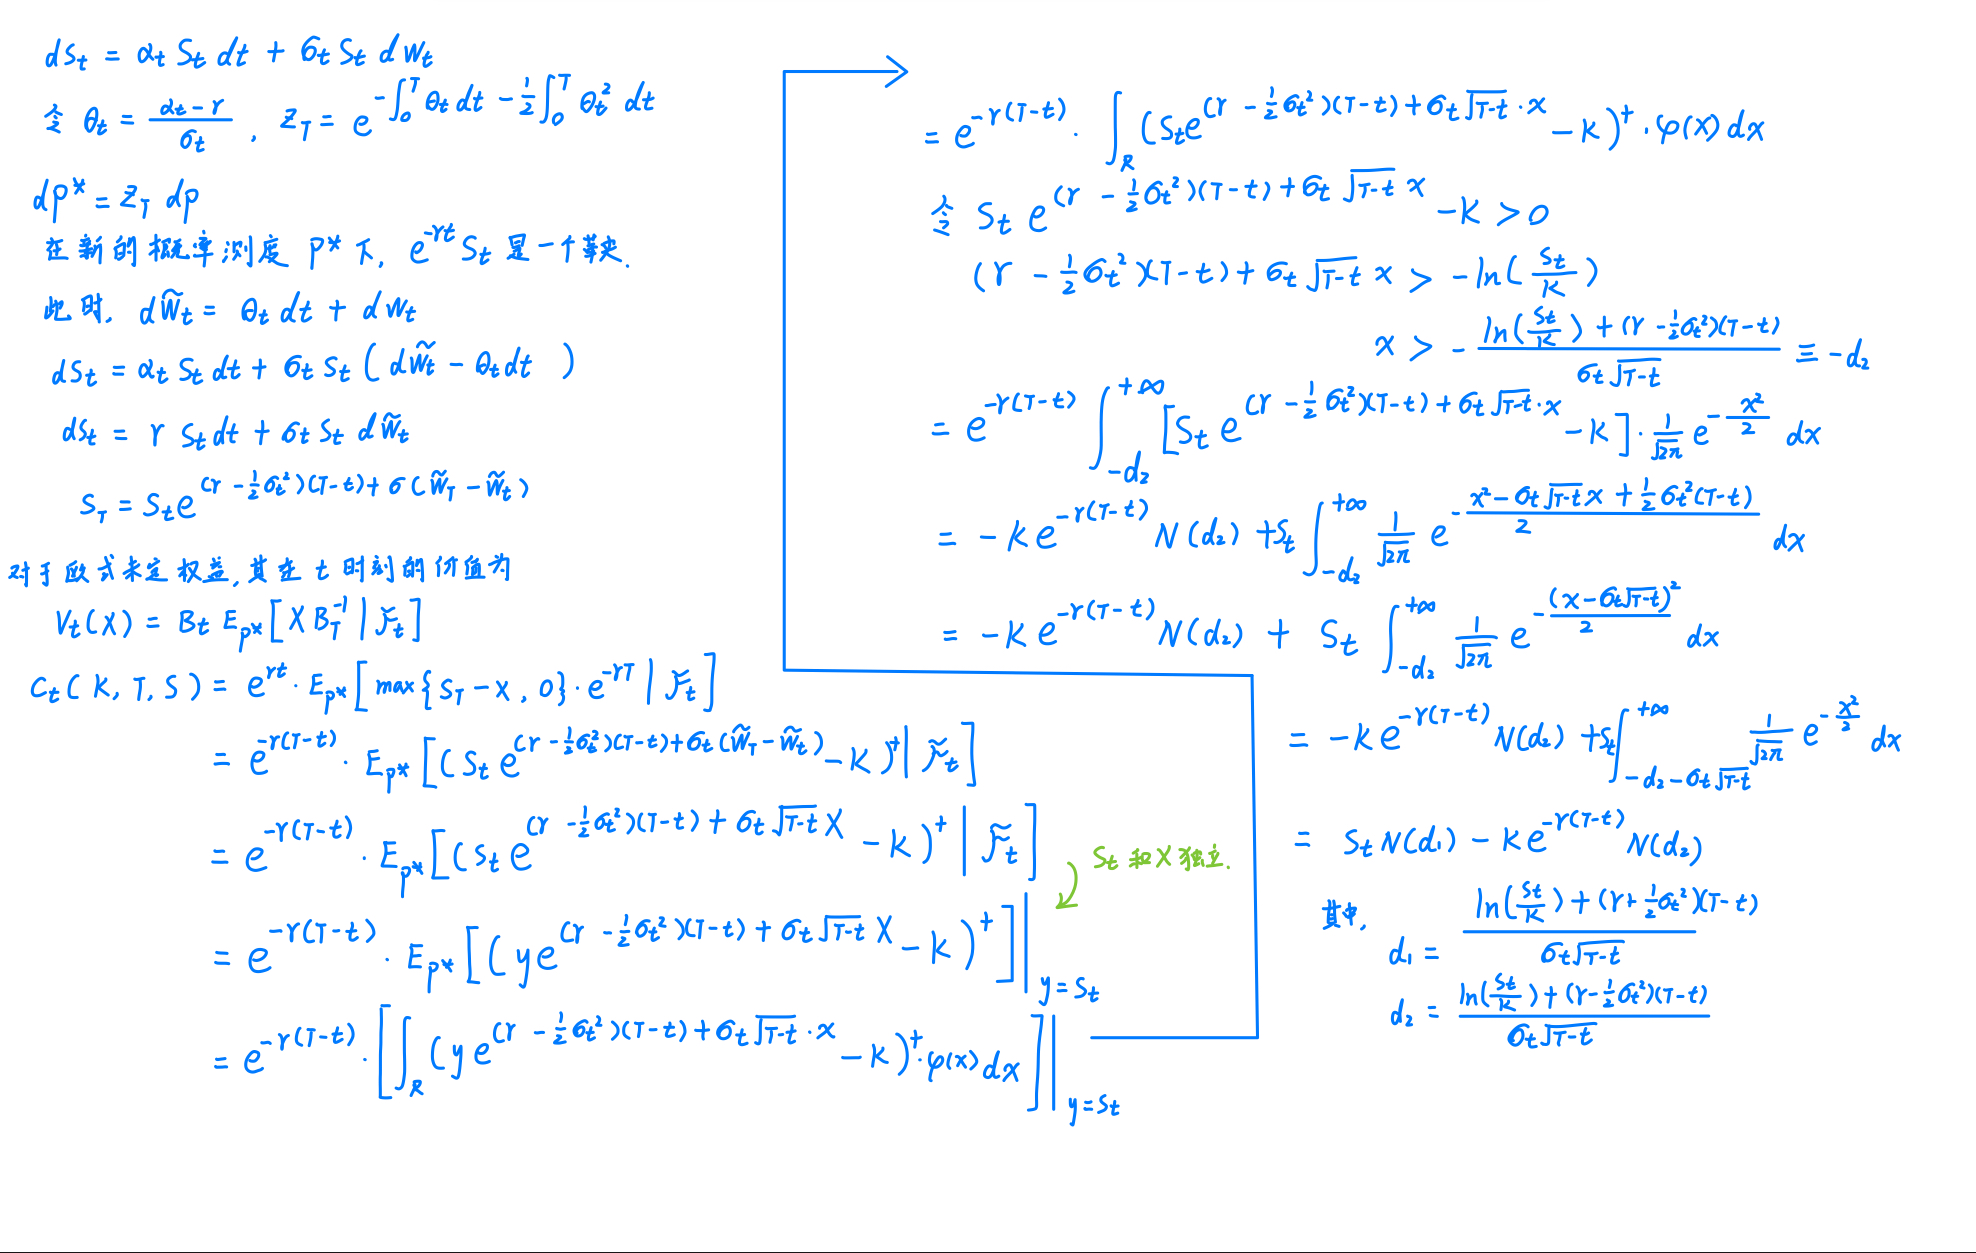 dSt = αt St dt + σt St dWt
令 θt = (αt − r)/σt , Z_T = e^{−∫_0^T θt dt − 1/2 ∫_0^T θt² dt}
dp* = Z_T dp
在新的概率测度 P* 下, e^{−rt} St 是一个鞅.
此时, dW̃t = θt dt + dWt
dSt = αt St dt + σt St ( dW̃t − θt dt )
dSt = r St dt + σt St dW̃t
S_T = St e^{(r − 1/2 σt²)(T−t) + σ(W̃_T − W̃t)}
对于欧式未定权益, 其在 t 时刻的价值为
Vt(X) = Bt E_{p*}[X B_T^{-1} | F̃t]
Ct(K, T, S) = e^{rt} · E_{p*}[max{S_T − X, 0} · e^{−rT} | F̃t]
= e^{−r(T−t)} · E_{p*}[(St e^{(r − 1/2 σt²)(T−t) + σt(W̃_T − W̃t)} − K)^+ | F̃t]
= e^{−r(T−t)} · E_{p*}[(St e^{(r − 1/2 σt²)(T−t) + σt√(T−t) X} − K)^+ | F̃t]
St 和 X 独立.
= e^{−r(T−t)} · E_{p*}[(y e^{(r − 1/2 σt²)(T−t) + σt√(T−t) X} − K)^+] |_{y=St}
= e^{−r(T−t)} · [∫_R (y e^{(r − 1/2 σt²)(T−t) + σt√(T−t) · x} − K)^+ · φ(x) dx] |_{y=St}
= e^{−r(T−t)} · ∫_R (St e^{(r − 1/2 σt²)(T−t) + σt√(T−t) · x} − K)^+ · φ(x) dx
令 St e^{(r − 1/2 σt²)(T−t) + σt √(T−t) x} − K > 0
(r − 1/2 σt²)(T−t) + σt √(T−t) x > −ln(St/K)
x > − (ln(St/K) + (r − 1/2 σt²)(T−t))/(σt√(T−t)) ≡ −d₂
= e^{−r(T−t)} ∫_{−d₂}^{+∞} [St e^{(r − 1/2 σt²)(T−t) + σt√(T−t) · x} − K] · 1/√(2π) e^{−x²/2} dx
= −K e^{−r(T−t)} N(d₂) + St ∫_{−d₂}^{+∞} 1/√(2π) e^{−(x² − σt√(T−t) x + 1/2 σt²(T−t))/2} dx
= −K e^{−r(T−t)} N(d₂) + St ∫_{−d₂}^{+∞} 1/√(2π) e^{−(x − σt√(T−t))²/2} dx
= −K e^{−r(T−t)} N(d₂) + St ∫_{−d₂−σt√(T−t)}^{+∞} 1/√(2π) e^{−x²/2} dx
= St N(d₁) − K e^{−r(T−t)} N(d₂)
其中, d₁ = (ln(St/K) + (r + 1/2 σt²)(T−t))/(σt√(T−t))
d₂ = (ln(St/K) + (r − 1/2 σt²)(T−t))/(σt√(T−t))